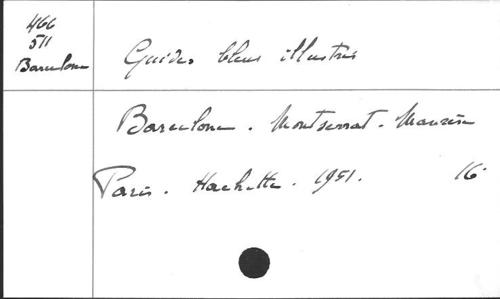 466
511
Barcelone
Guides bleus illustrés
Barcelone. Montserrat. Manrèse
Paris. Hachette. 1951. 16°